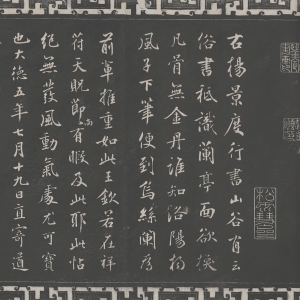 右楊景度行書山谷有云
俗書秪識蘭亭面欲換
凡骨無金丹誰知洛陽楊
風子下筆便到烏絲闌
前輩推重如此王欽若在祥
符天貺節而有暇及此耶此帖
絕無發風動氣處尤可寶
也大德五年七月十九日直寄道